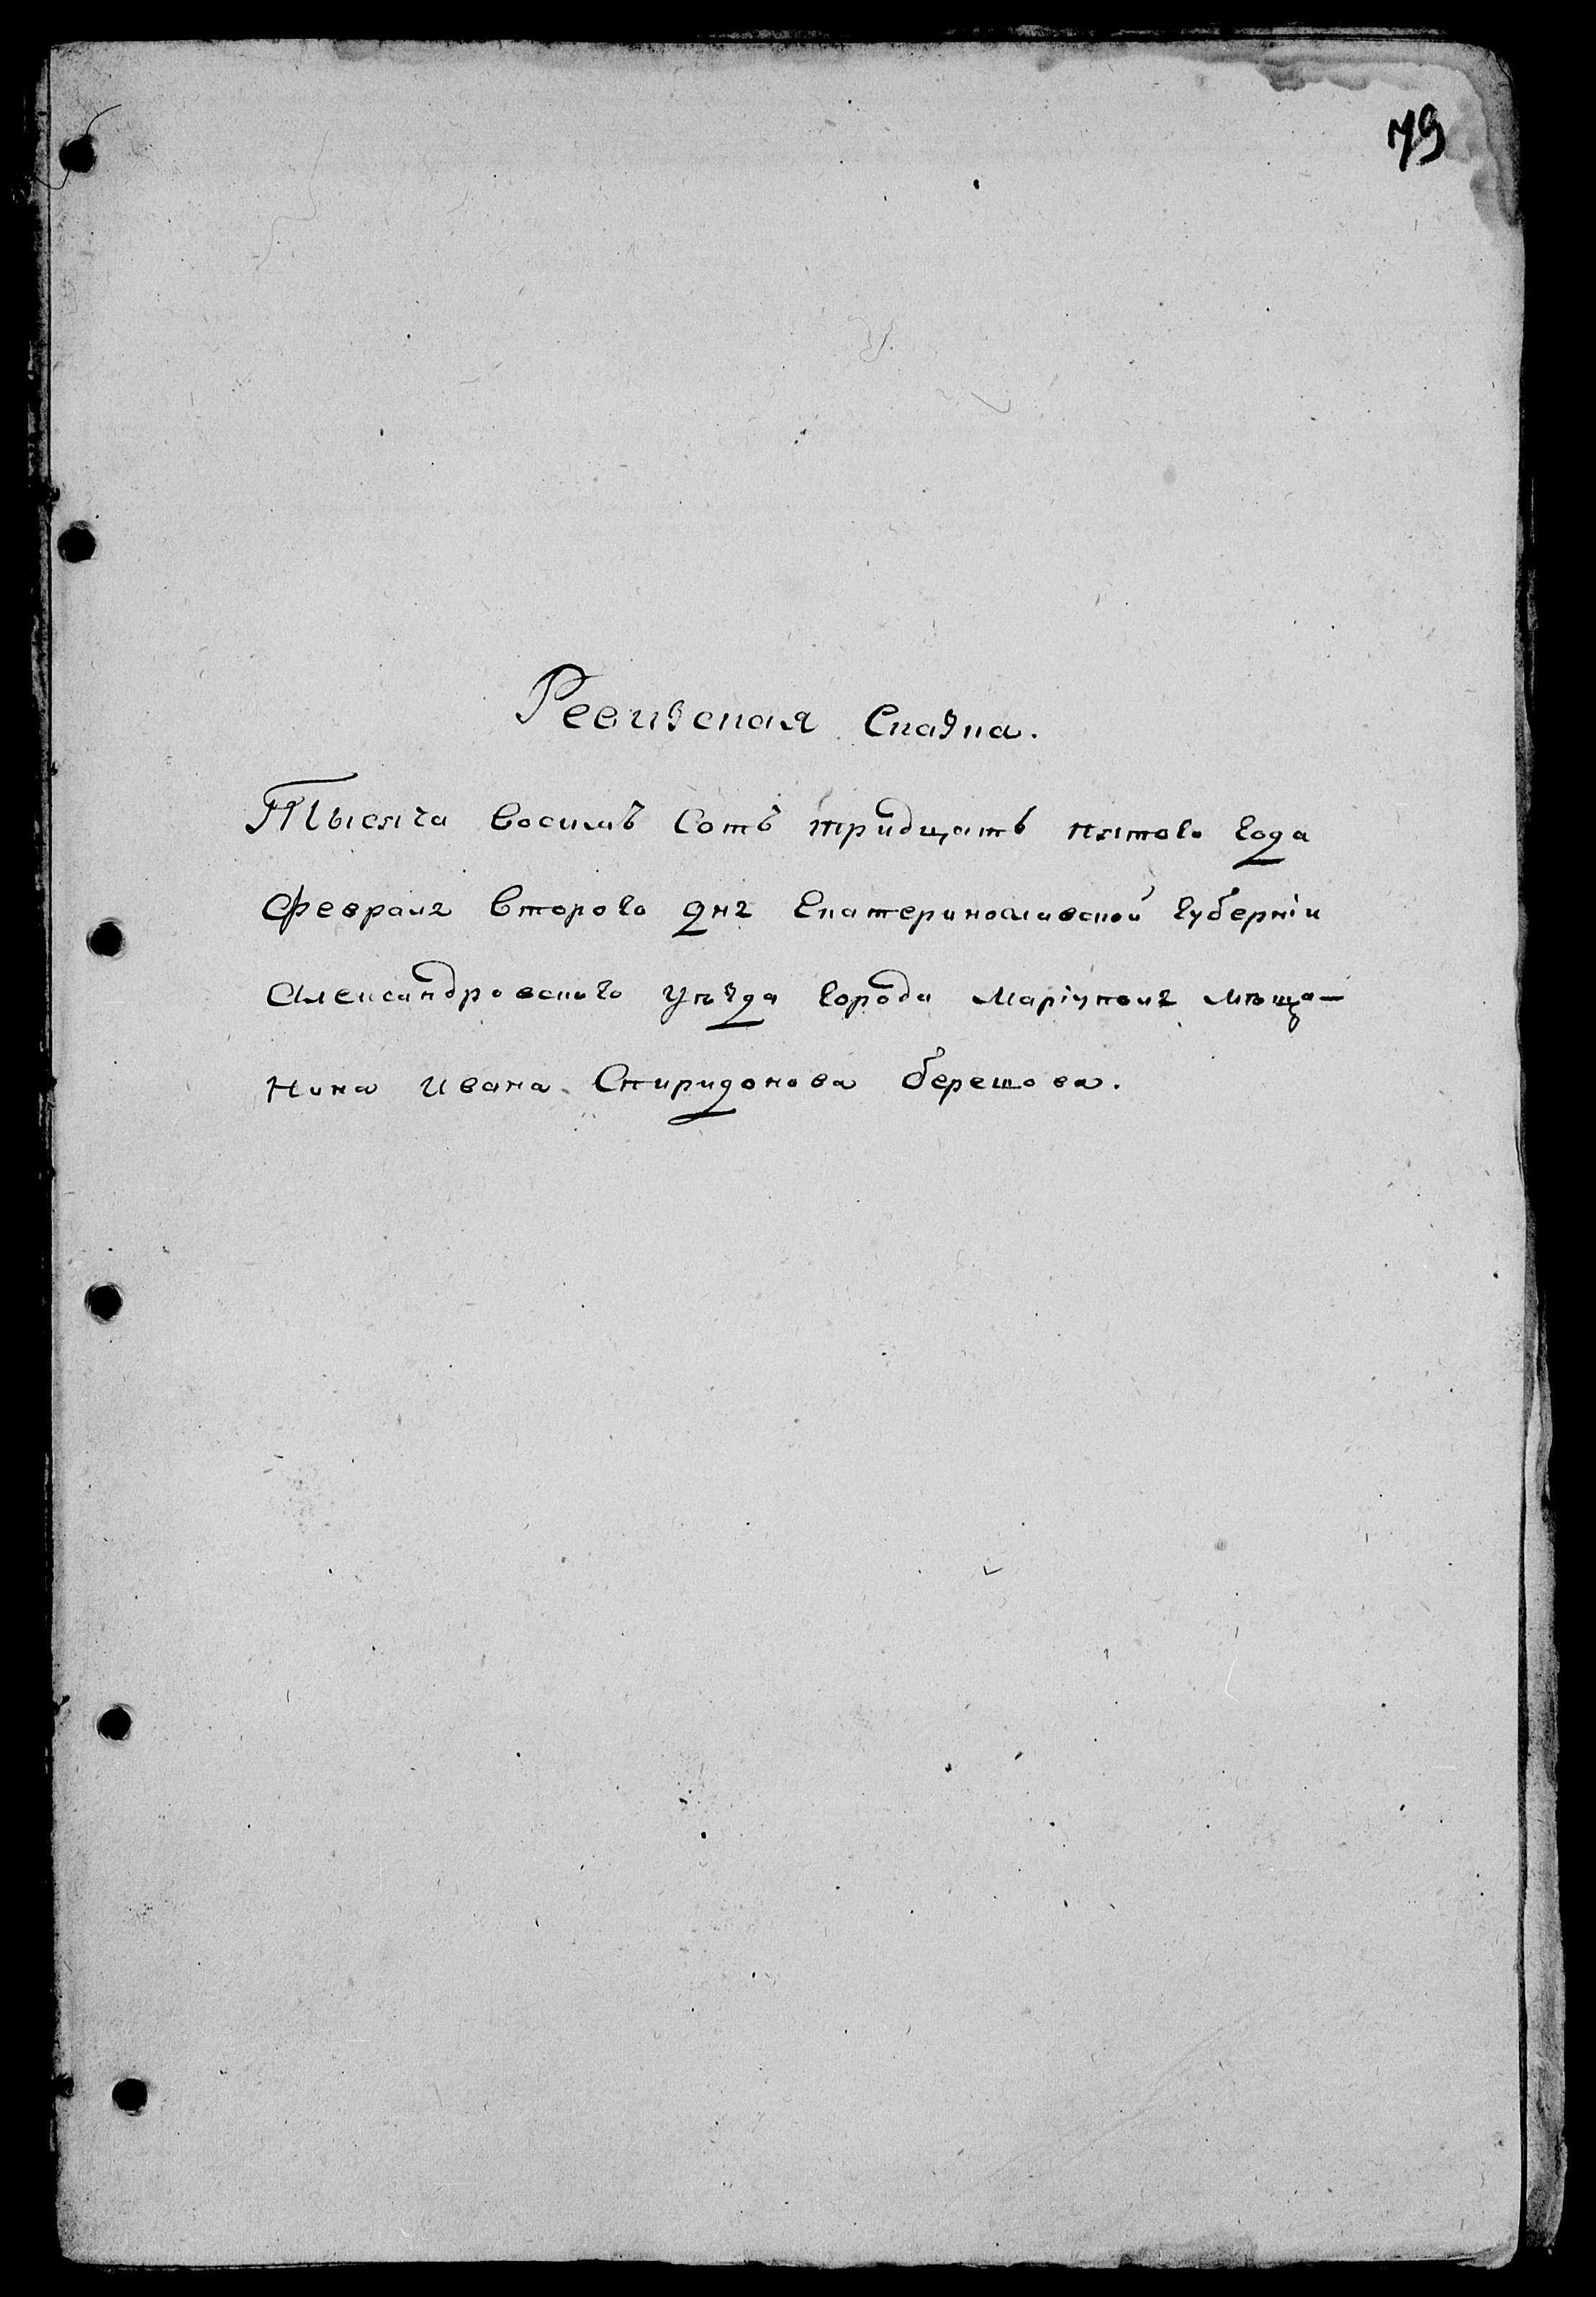 79
Ревизская Сказка.
Тысяча восимъ Сотъ тридцать пятого года
февраля второго дня Екатеринославской губерніи
Александровского уѣзда города Маріуполя мѣща-
нина Ивана Спиридонова Берешова.